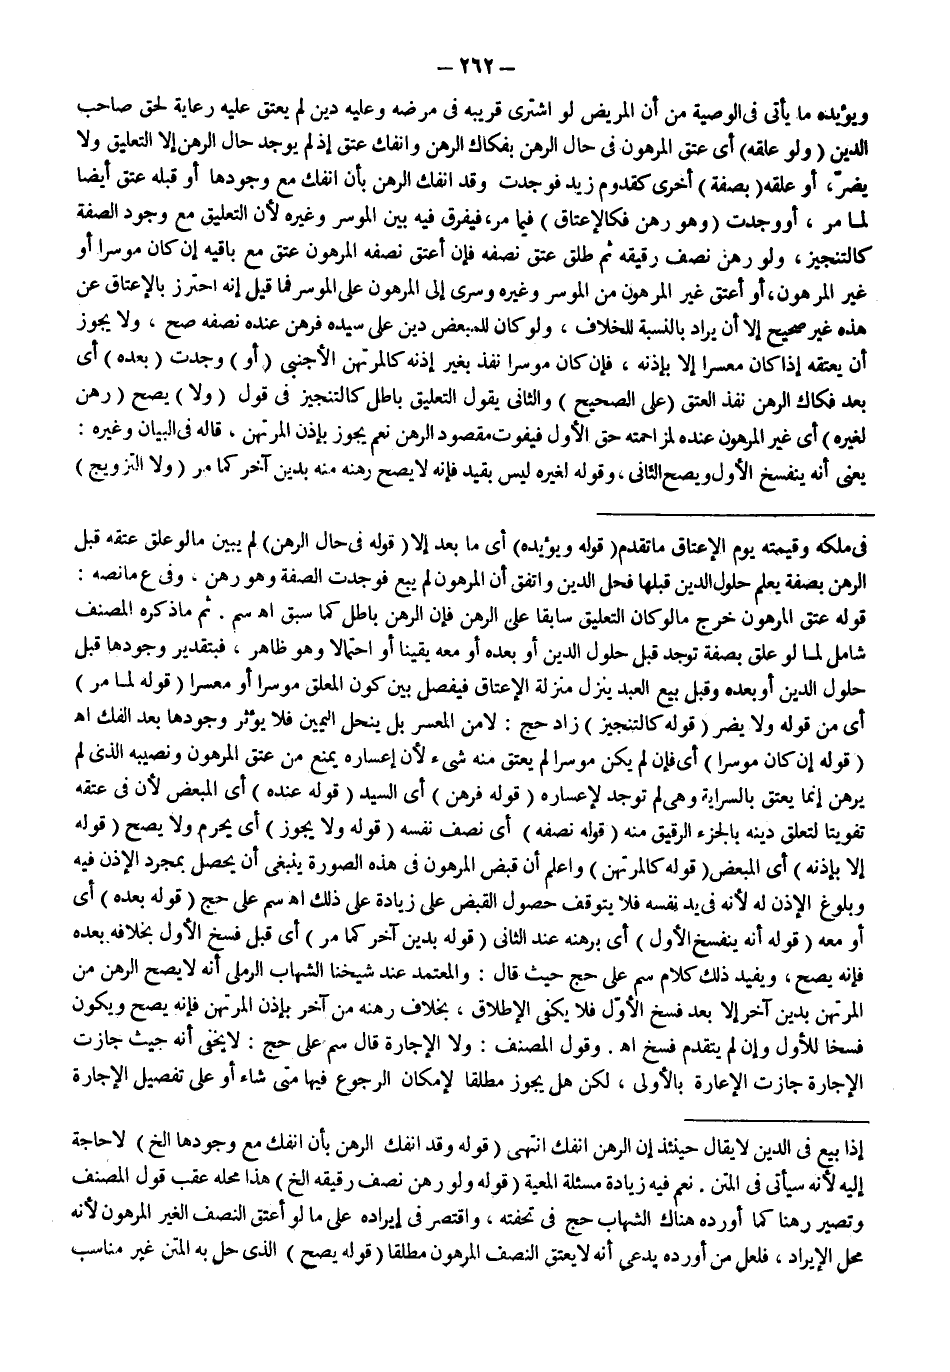 – ٢٦٢ –
ويؤيده ما يأتى فى الوصية من أن المريض لو اشترى قريبه فى مرضه وعليه دين لم يعتق عليه رعاية لحق صاحب
الدين ( ولو علقه) أى عتق المرهون فى حال الرهن بفكاك الرهن وانفك عتق إذ لم يوجد حال الرهن إلا التعليق ولا
يضرّ، أو علقه( بصفة ) أخرى كقدوم زيد فوجدت وقد انفك الرهن بأن انفك مع وجودها أو قبله عتق أيضا
لمـا مر ، أووجدت ( وهو رهن فكالإعتاق ) فيما مر، فيفرق فيه بين الموسر وغيره لأن التعليق مع وجود الصفة
كالتنجيز ، ولو رهن نصف رقيقه ثم طلق عتق نصفه فإن أعتق نصفه المرهون عتق مع باقيه إن كان موسرا أو
غير المرهون، أو أعتق غير المرهون من الموسر وغيره وسرى إلى المرهون على الموسر فما قيل إنه احترز بالإعتاق عن
هذه غير صحيح إلا أن يراد بالنسبة للخلاف ، ولو كان للمبعض دين على سيده فرهن عنده نصفه صح ، ولا يجوز
أن يعتقه إذا كان معسرا إلا بإذنه ، فإن كان موسرا نفذ بغير إذنه كالمرتهن الأجنبى ( أو ) وجدت ( بعده ) أى
بعد فكاك الرهن نفذ العتق (على الصحيح ) والثانى يقول التعليق باطل كالتنجيز فى قول ( ولا ) يصح ( رهن
لغيره ) أى غير المرهون عنده لمزاحمته حق الأول فيفوت مقصود الرهن نعم يجوز بإذن المرتهن ، قاله فى البيان وغيره :
يعنى أنه ينفسخ الأول ويصح الثانى ، وقوله لغيره ليس بقيد فإنه لا يصح رهنه منه بدين آخر كما مر ( ولا التزويج )
فى ملكه وقيمته يوم الإعتاق ماتقدم( قوله ويؤيده) أى ما بعد إلا( قوله فى حال الرهن) لم يبين مالو علق عتقه قبل
الرهن بصفة يعلم حلول الدين قبلها فحل الدين واتفق أن المرهون لم يبع فوجدت الصفة وهو رهن ، وفى ع مانصه :
قوله عتق المرهون خرج مالو كان التعليق سابقا على الرهن فإن الرهن باطل كما سبق اه سم . ثم ماذكره المصنف
شامل لمـا لو علق بصفة توجد قبل حلول الدين أو بعده أو معه يقينا أو احتمالا وهو ظاهر ، فبتقدير وجودها قبل
حلول الدين أو بعده وقبل بيع العبد ينزل منزلة الإعتاق فيفصل بين كون المعلق موسرا أو معسرا ( قوله لمـا مر )
أى من قوله ولا يضر ( قوله كالتنجيز ) زاد حج : لامن المعسر بل ينحل اليمين فلا يؤثر وجودها بعد الفك اه
( قوله إن كان موسرا ) أى فإن لم يكن موسرا لم يعتق منه شىء لأن إعساره يمنع من عتق المرهون ونصيبه الذى لم
يرهن إنما يعتق بالسراية وهى لم توجد لإعساره ( قوله فرهن ) أى السيد ( قوله عنده ) أى المبعض لأن فى عتقه
تفويتا لتعلق دينه بالجزء الرقيق منه ( قوله نصفه ) أى نصف نفسه ( قوله ولا يجوز ) أى يحرم ولا يصح ( قوله
إلا بإذنه ) أى المبعض( قوله كالمرتهن ) واعلم أن قبض المرهون فى هذه الصورة ينبغى أن يحصل بمجرد الإذن فيه
وبلوغ الإذن له لأنه فى يد نفسه فلا يتوقف حصول القبض على زيادة على ذلك اه سم على حج ( قوله بعده ) أى
أو معه ( قوله أنه ينفسخ الأول ) أى برهنه عند الثانى ( قوله بدين آخر كما مر ) أى قبل فسخ الأول بخلافه بعده
فإنه يصح ، ويفيد ذلك كلام سم على حج حيث قال : والمعتمد عند شيخنا الشهاب الرملى أنه لا يصح الرهن من
المرتهن بدين آخر إلا بعد فسخ الأوّل فلا يكفى الإطلاق ، بخلاف رهنه من آخر بإذن المرتهن فإنه يصح ويكون
فسخا للأول وإن لم يتقدم فسخ اه . وقول المصنف : ولا الإجارة قال سم على حج : لا يخفى أنه حيث جازت
الإجارة جازت الإعارة بالأولى ، لكن هل يجوز مطلقا لإمكان الرجوع فيها متى شاء أو على تفصيل الإجارة
إذا بيع فى الدين لا يقال حينئذ إن الرهن انفك انتهى ( قوله وقد انفك الرهن بأن انفك مع وجودها الخ ) لا حاجة
إليه لأنه سيأتى فى المتن . نعم فيه زيادة مسئلة المعية ( قوله ولو رهن نصف رقيقه الخ ) هذا محله عقب قول المصنف
وتصير رهنا كما أورده هناك الشهاب حج فى تحفته ، واقتصر فى إيراده على ما لو أعتق النصف الغير المرهون لأنه
محل الإيراد ، فلعل من أورده يدعى أنه لا يعتق النصف المرهون مطلقا ( قوله يصح ) الذى حل به المتن غير مناسب